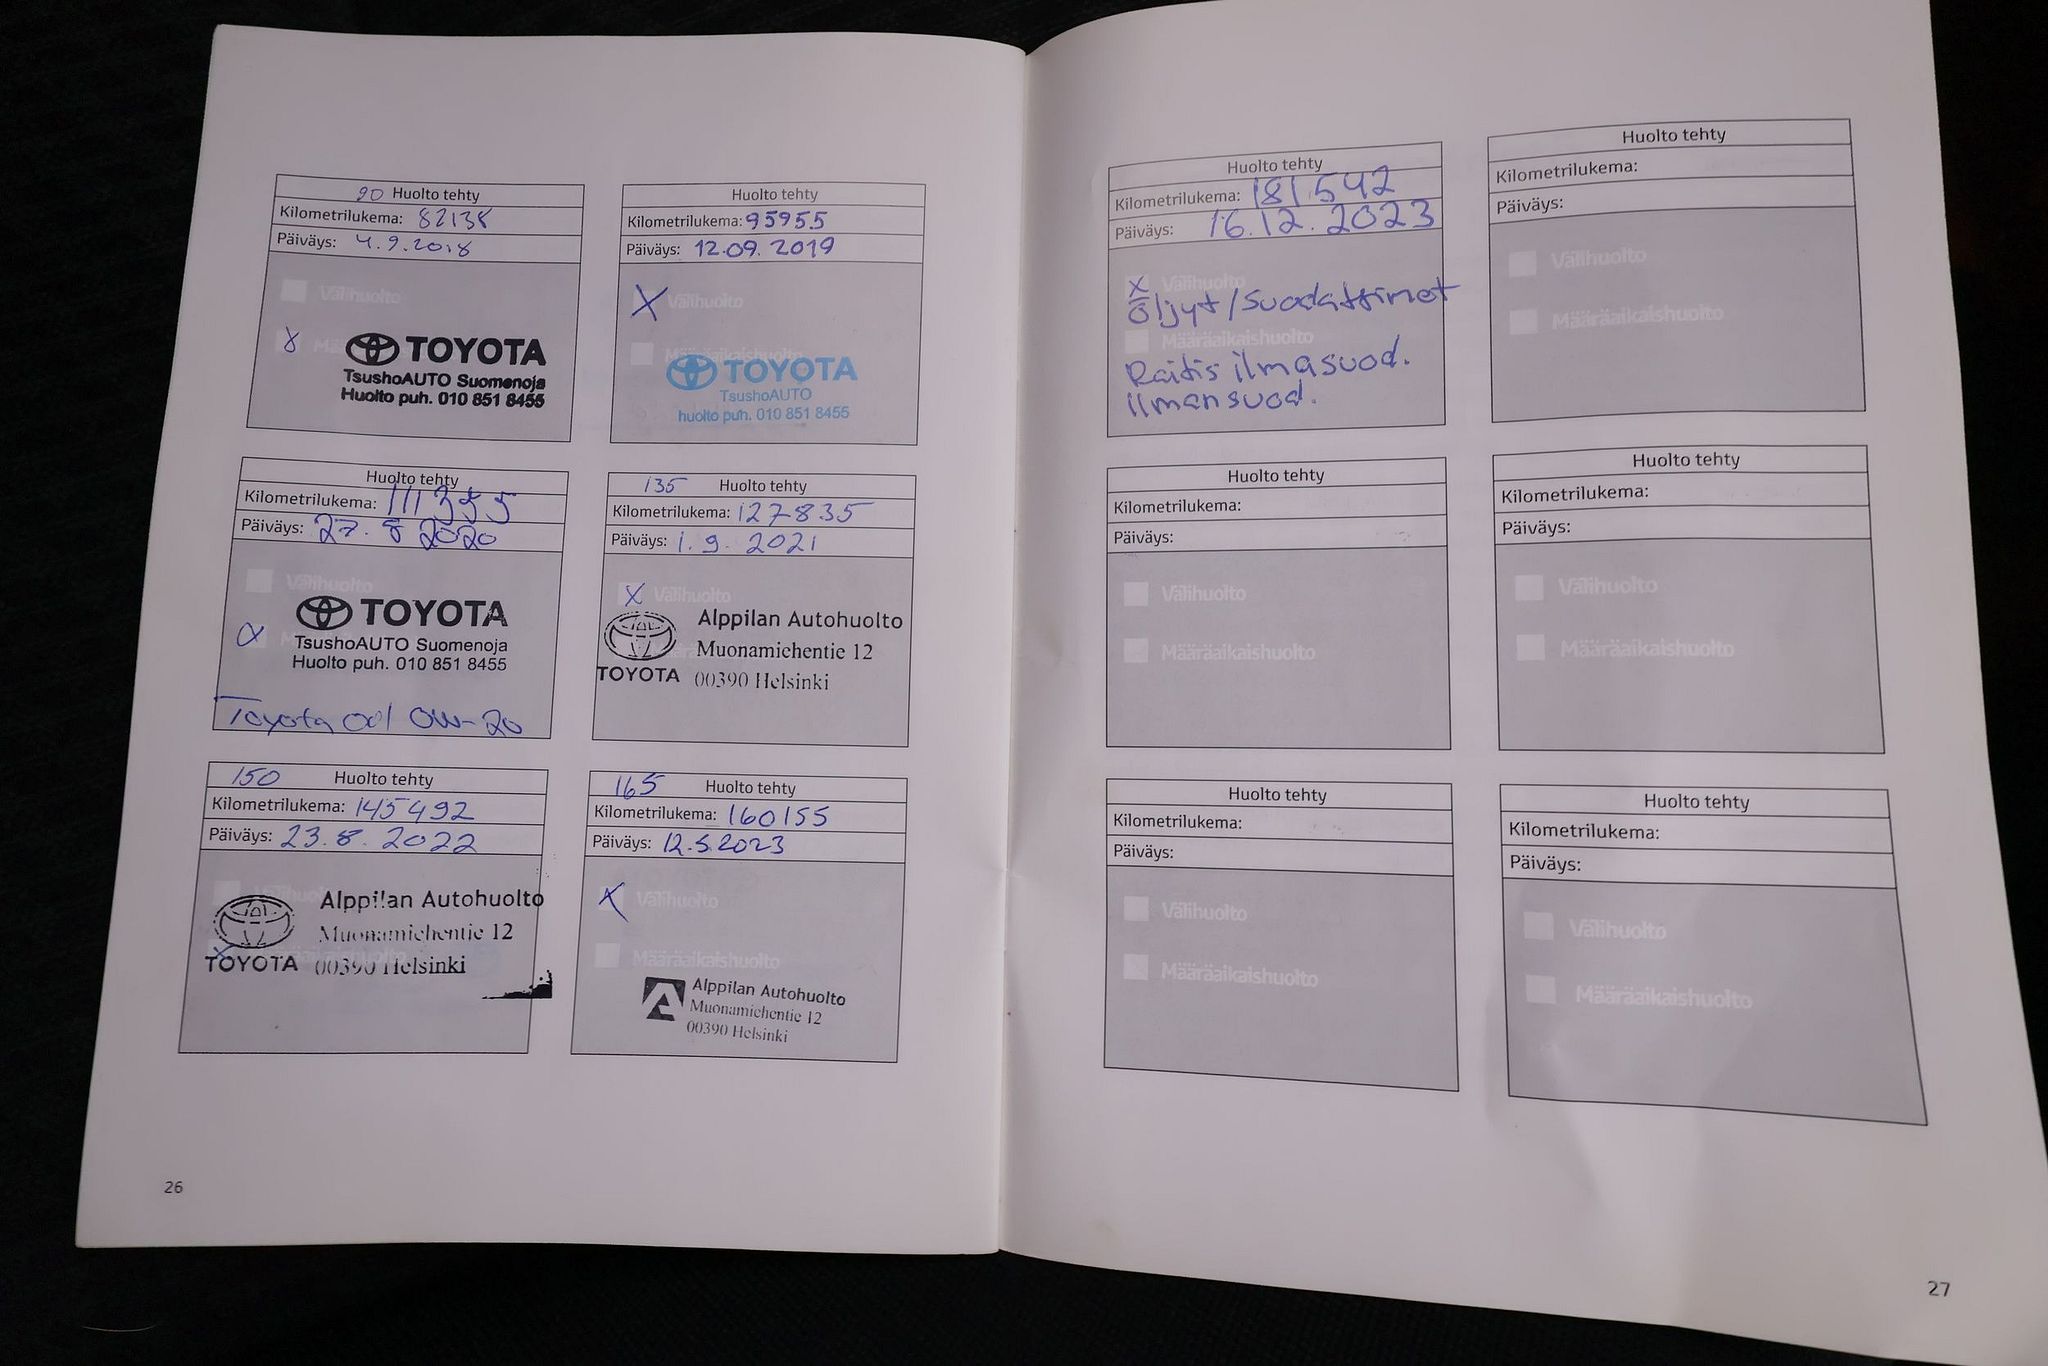 90 Huolto tehty
Kilometrilukema: 82138
Päiväys: 4.9.2018
Välihuolto
TOYOTA
TsushoAUTO Suomenoja
Huolto puh. 010 851 8455
Huolto tehty
Kilometrilukema: 95955
Päiväys: 12.09.2019
X Välihuolto
Määräaikaishuolto
TOYOTA
TsushoAUTO
huolto puh. 010 851 8455
Huolto tehty
Kilometrilukema: 111355
Päiväys: 27.8 2020
Välihuolto
TOYOTA
TsushoAUTO Suomenoja
Huolto puh. 010 851 8455
Toyota oil 0W-20
135 Huolto tehty
Kilometrilukema: 127835
Päiväys: 1.9. 2021
X Välihuolto
Alppilan Autohuolto
Muonamiehentie 12
TOYOTA 00390 Helsinki
150 Huolto tehty
Kilometrilukema: 145492
Päiväys: 23.8. 2022
Alppilan Autohuolto
Muonamiehentie 12
TOYOTA 00390 Helsinki
165 Huolto tehty
Kilometrilukema: 160155
Päiväys: 12.5.2023
X Välihuolto
Määräaikaishuolto
Alppilan Autohuolto
Muonamiehentie 12
00390 Helsinki
26
Huolto tehty
Kilometrilukema: 181542
Päiväys: 16.12.2023
X Välihuolto
Öljyt/suodattimet
Määräaikaishuolto
Raitis ilmasuod.
ilmansuod.
Huolto tehty
Kilometrilukema:
Päiväys:
Välihuolto
Määräaikaishuolto
Huolto tehty
Kilometrilukema:
Päiväys:
Välihuolto
Määräaikaishuolto
Huolto tehty
Kilometrilukema:
Päiväys:
Välihuolto
Määräaikaishuolto
Huolto tehty
Kilometrilukema:
Päiväys:
Välihuolto
Määräaikaishuolto
Huolto tehty
Kilometrilukema:
Päiväys:
Välihuolto
Määräaikaishuolto
27